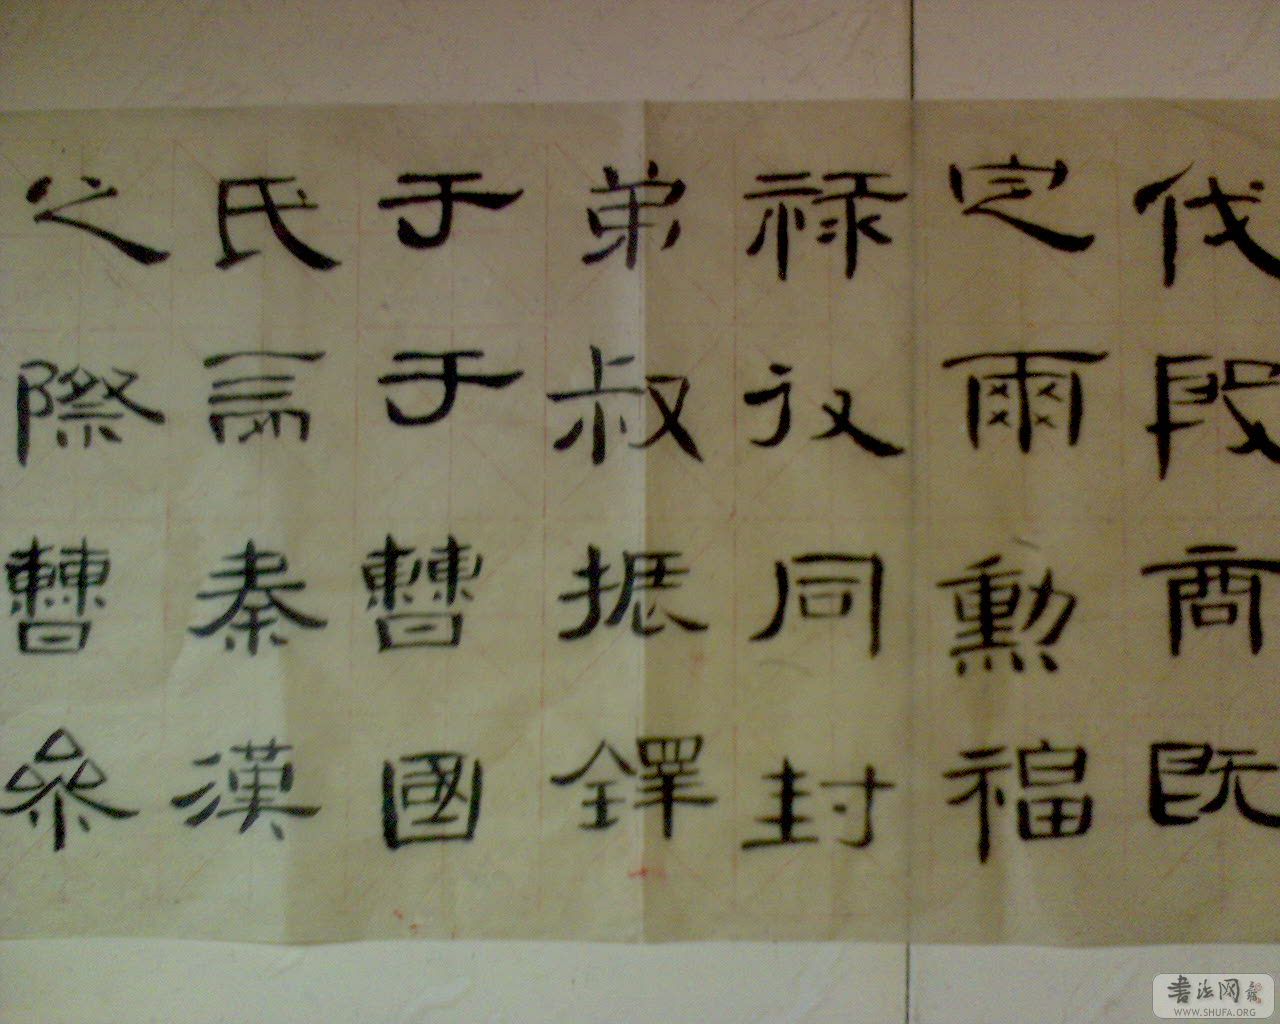 伐殷商既
定爾勳福
祿攸同封
弟叔振鐸
于于曹國
氏焉秦漢
之際曹參
書法网
WWW.SHUFA.ORG